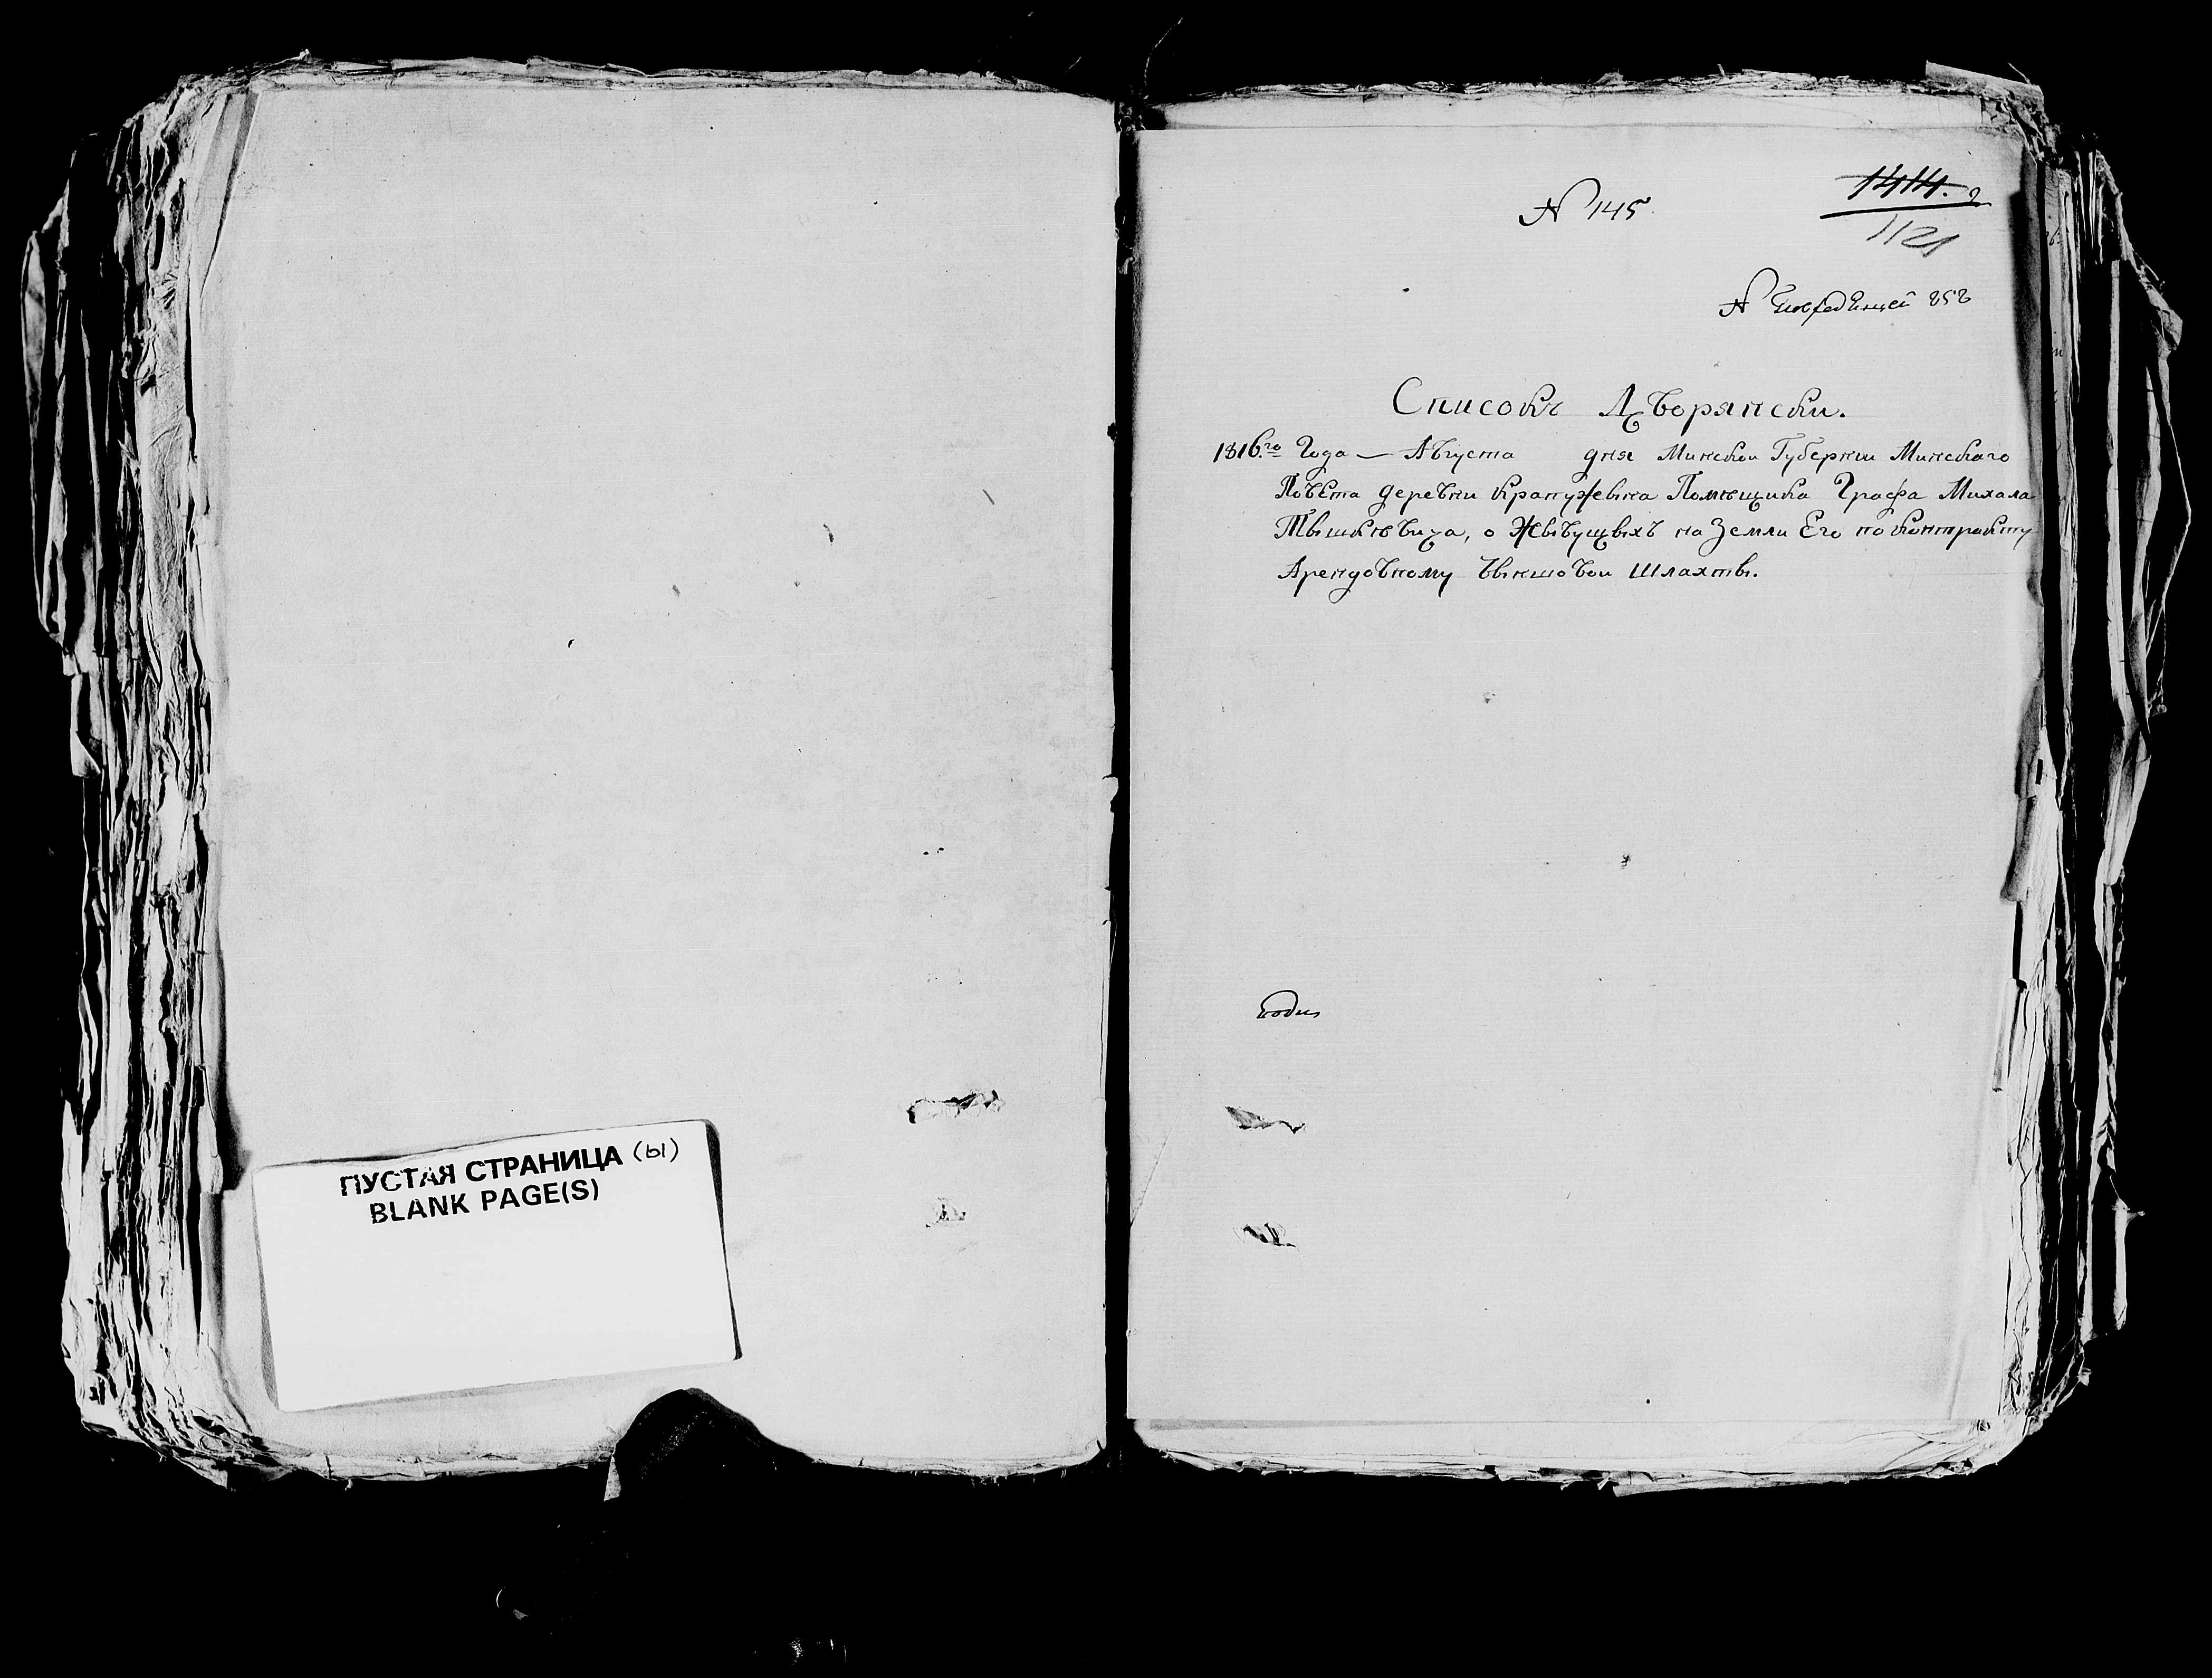 ПУСТАЯ СТРАНИЦА (Ы)
BLANK PAGE(S)
№ 145.
1414.
1121
№ 858
Списокъ Дворянски.
1816.го Года — Августа дня Минскои Губернии Минскаго
Повѣта деревни Крапужына Помѣщика Графа Михала
Тышкѣвича, о Жывущыхъ на Земли Его по контракту
Арендовному Чыншовои Шлахты.